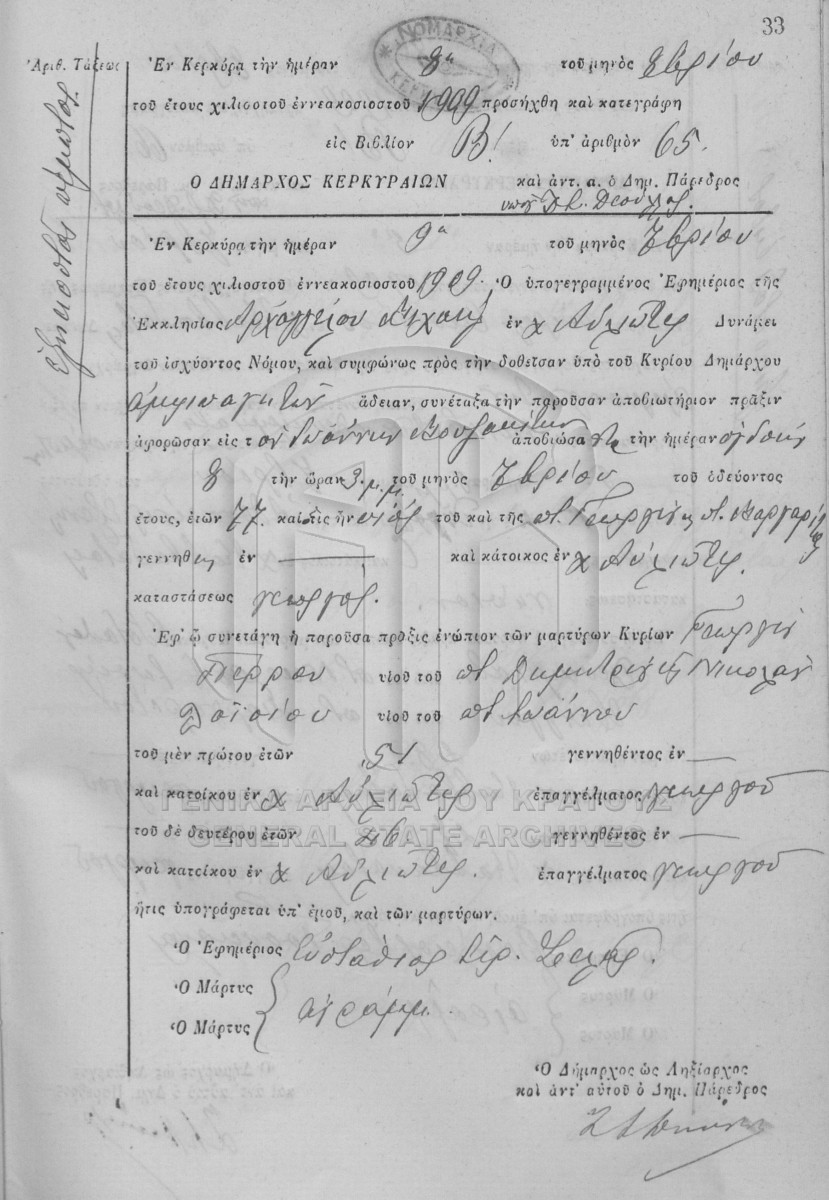 33
Ἀριθ. Τάξεως
ἑξηκοστὸς πέμπτος
ΝΟΜΑΡΧΙΑ
Ἐν Κερκύρᾳ τὴν ἡμέραν 8η τοῦ μηνὸς 8βρίου
τοῦ ἔτους χιλιοστοῦ ἐννεακοσιοστοῦ 1909 προσήχθη καὶ κατεγράφη
εἰς Βιβλίον Β! ὑπ' ἀριθμὸν 65.
Ο ΔΗΜΑΡΧΟΣ ΚΕΡΚΥΡΑΙΩΝ καὶ ἀντ. α. ὁ Δημ. Πάρεδρος
Ἐν Κερκύρᾳ τὴν ἡμέραν 9η τοῦ μηνὸς 7βρίου
τοῦ ἔτους χιλιοστοῦ ἐννεακοσιοστοῦ 1909. Ὁ ὑπογεγραμμένος Ἐφημέριος τῆς
Ἐκκλησίας Ἀρχαγγέλου Μιχαὴλ ἐν χ Αὐλιώτες Δυνάμει
τοῦ ἰσχύοντος Νόμου, καὶ συμφώνως πρὸς τὴν δοθεῖσαν ὑπὸ τοῦ Κυρίου Δημάρχου
ἀμφιπαγητῶν ἄδειαν, συνέταξα τὴν παροῦσαν ἀποβιωτήριον πρᾶξιν
ἀφορῶσαν εἰς τὸν Ἰωάννην ἀποβιώσαντα τὴν ἡμέραν ὀγδόην
8 τὴν ὥραν 3 μ.μ. τοῦ μηνὸς 7βρίου τοῦ ὁδεύοντος
ἔτους, ἐτῶν 77 καὶ τις ἦν υἱὸς τοῦ καὶ τῆς ποτ. Γεωργίου κ ποτ. Μαργαρίτας
γεννηθεὶς ἐν — καὶ κάτοικος ἐν χ Αὐλιώτες.
καταστάσεως γεωργός.
Ἐφ' ᾧ συνετάγη ἡ παροῦσα πρᾶξις ἐνώπιον τῶν μαρτύρων Κυρίων Γεωργίου
Πέρρου υἱοῦ τοῦ ποτ Δημητρίου κ Νικολάου
Λοΐσιου υἱοῦ τοῦ ποτ Ἰωάννου
τοῦ μὲν πρώτου ἐτῶν 51 γεννηθέντος ἐν —
καὶ κατοίκου ἐν χ Αὐλιώτες ἐπαγγέλματος γεωργοῦ
ΓΕΝΙΚΑ ΑΡΧΕΙΑ ΤΟΥ ΚΡΑΤΟΥΣ
GENERAL STATE ARCHIVES
τοῦ δὲ δευτέρου ἐτῶν 46 γεννηθέντος ἐν —
καὶ κατοίκου ἐν χ Αὐλιώτες. ἐπαγγέλματος γεωργοῦ
ἥτις ὑπογράφεται ὑπ' ἐμοῦ, καὶ τῶν μαρτύρων.
Ὁ Ἐφημέριος Εὐστάθιος Ἱερ.
Ὁ Μάρτυς
ἀγράμμ.
Ὁ Μάρτυς
Ὁ Δήμαρχος ὡς Ληξίαρχος
καὶ ἀντ' αὐτοῦ ὁ Δημ. Πάρεδρος